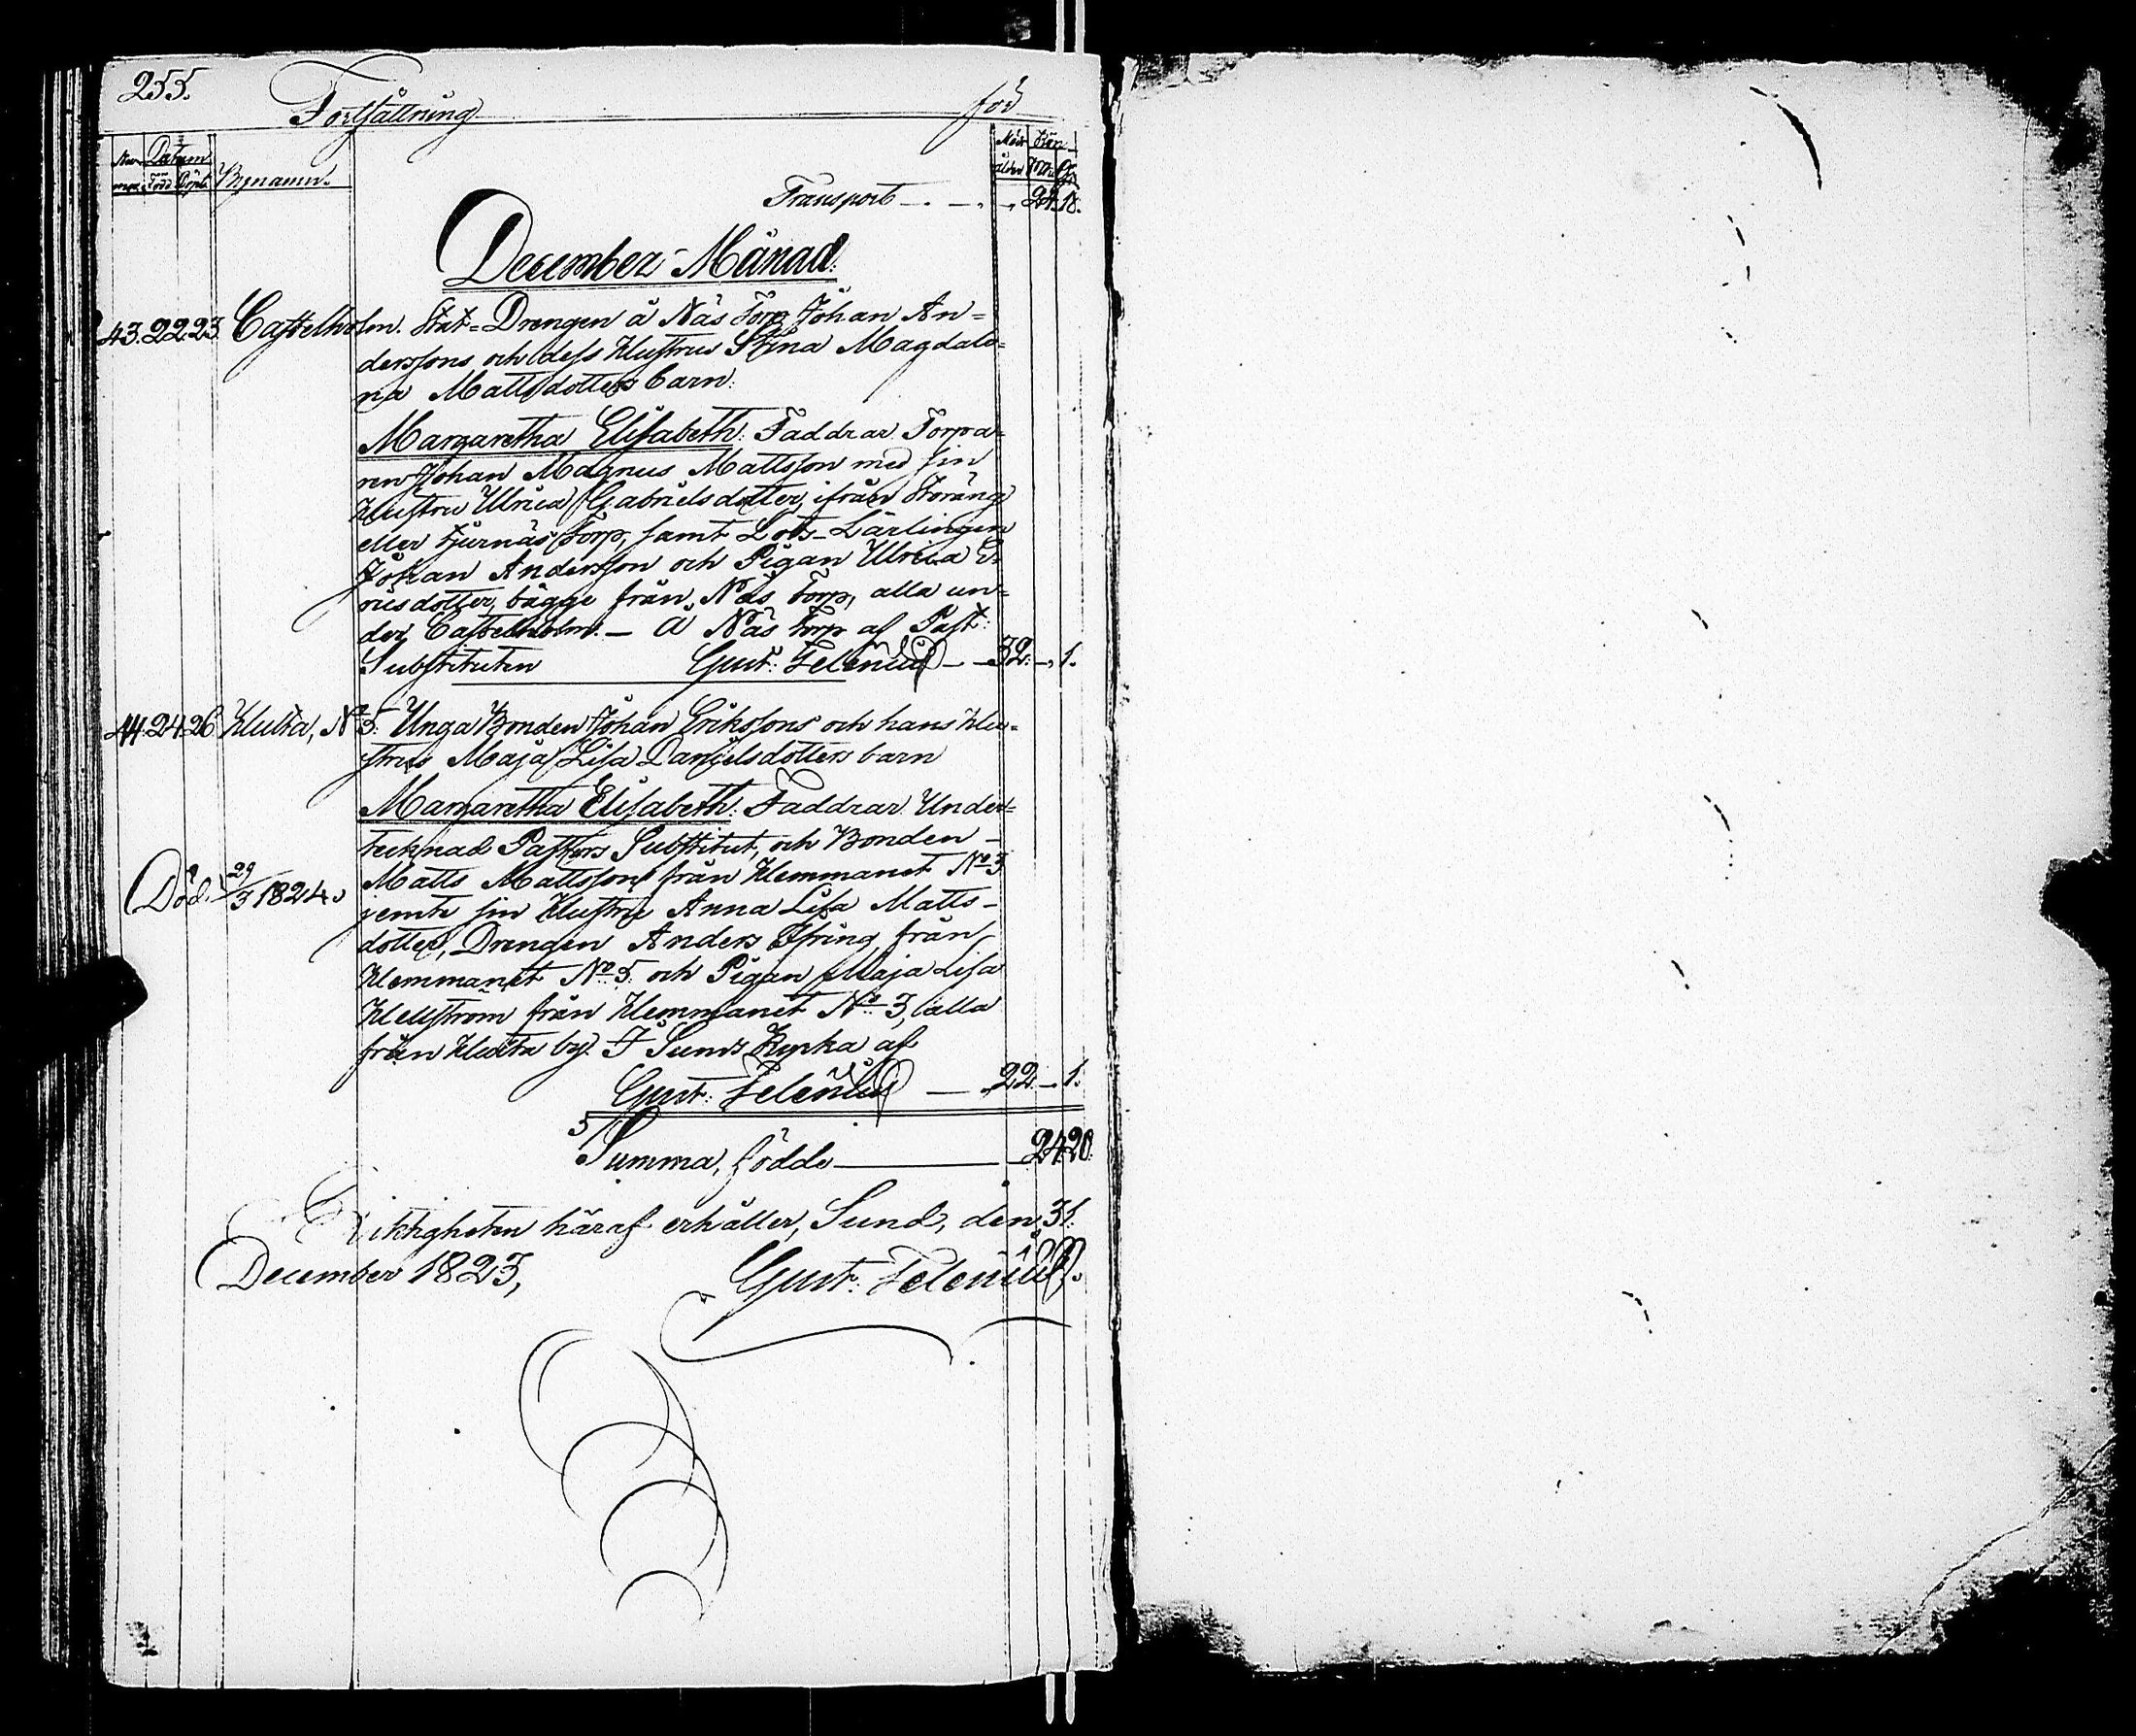 255.
Fortsättning för
Num- Datum Mod. Kön
mer. Född Döpt. Bynamn. ålder M. Q.
Transport 24. 18.
December Månad.
43. 22. 23. Castelholm. Stat-Drengen å Näs Torp Johan An-
derssons och dess Hustrus Stina Magdale-
na Mattsdotters barn:
Margaretha Elisabeth: Faddrar Torpa-
ren Johan Magnus Mattsson med sin
Hustru Ulrica Gabrielsdotter, ifrån Storäng
eller Tjurnäs Torp, samt Lots-Lärlingen
Johan Andersson och Pigan Ulrica E-
ricsdotter, bägge från Näs Torp, alla un-
der Castelholm. — Å Näs Torp af Past:
Substituten Gust: Zelenius — 32. — 1.
44. 24. 26. Hulta, No 5. Unga Bonden Johan Erikssons och hans Hu-
strus Maja Lisa Danielsdotters barn
Margaretha Elisabeth: Faddrar Under-
tecknad Pastors Substitut, och Bonden
Matts Mattsson från Hemmanet No 3
Död. 29/3 1824. jemte sin Hustru Anna Lisa Matts-
dotter, Drengen Anders Ifring från
Hemmanet No 5. och Pigan Maja Lisa
Hellström från Hemmanet No 3, alla
från Hulta by. I Sunds Kyrka af
Gust: Zelenius — 22. — 1.
Summa, födde — 24. 20.
Riktigheten häraf erhåller, Sund, den 31.
December 1823, Gust: Zelenius.